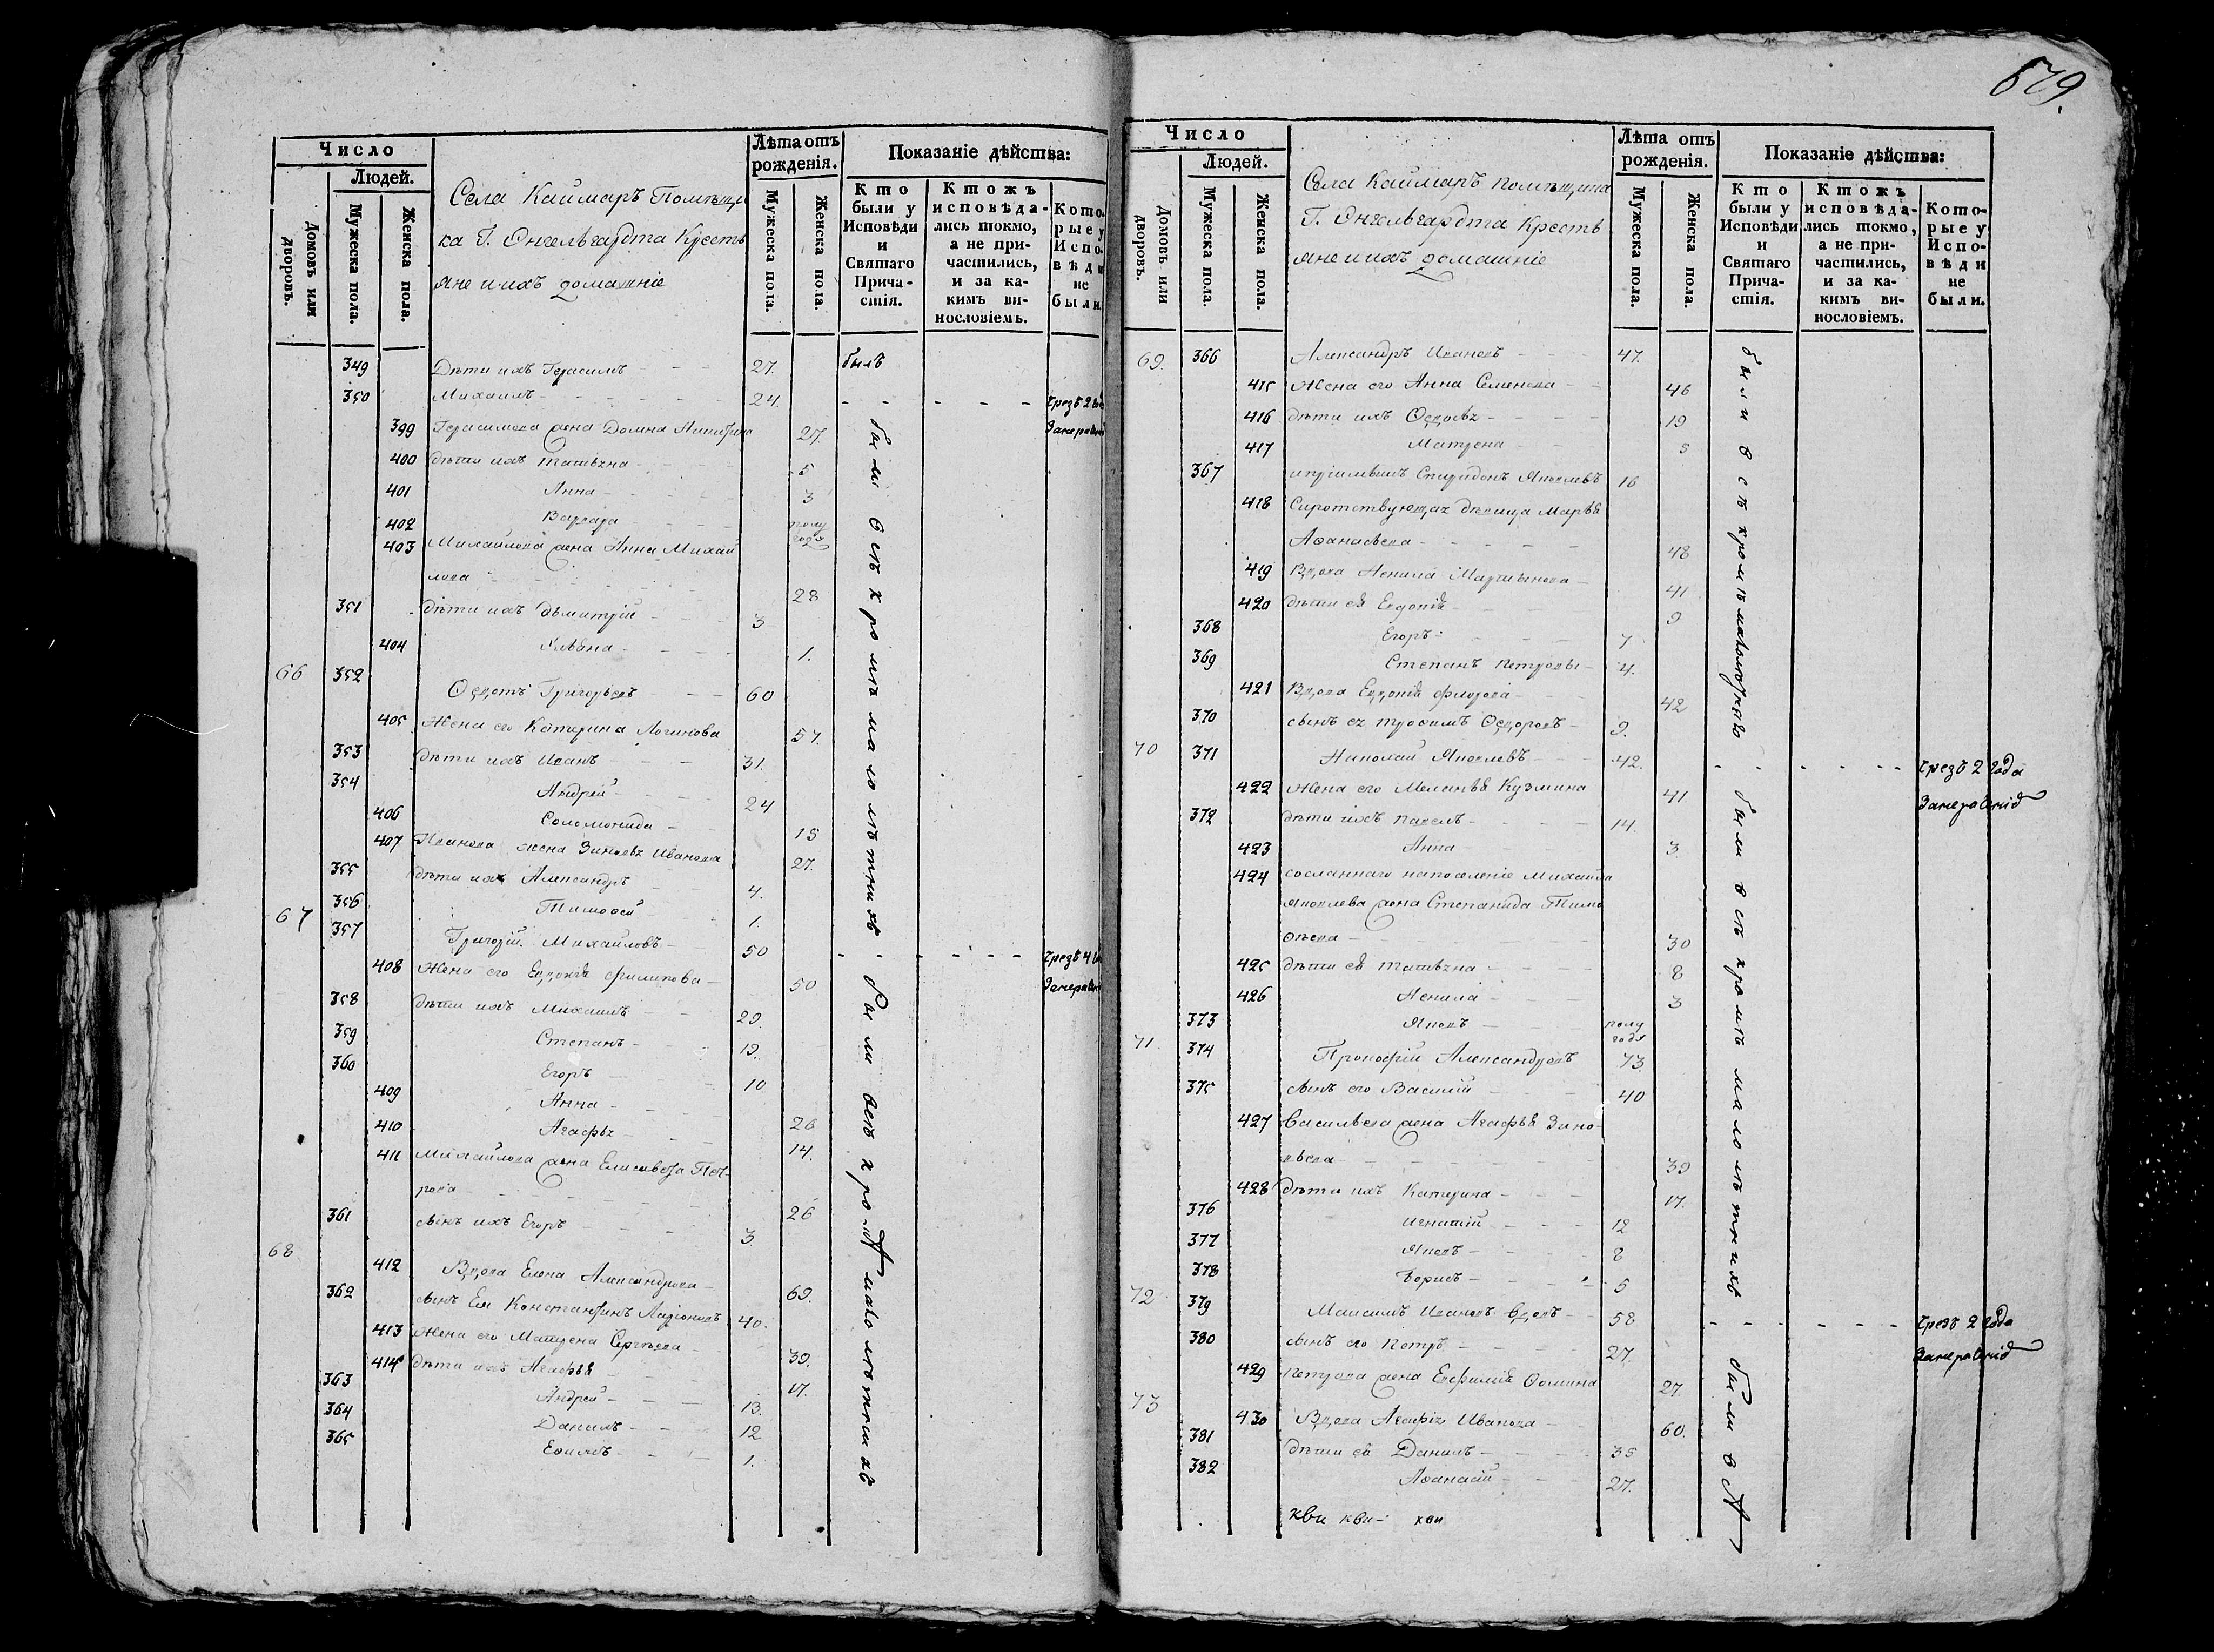 579.
Число
Людей.
Домовъ или дворовъ.
Мужеска пола.
Женска пола.
Села Каймаръ Помѣщи
ка Г. Энгельгардта Кресть
яне и ихъ домашніе
Лѣта отъ рожденія.
Мужеска пола.
Женска пола.
Показаніе дѣйства:
Кто были у Исповѣди и Святаго Причастія.
Ктожъ исповѣдались токмо, а не причастились, и за какимъ винословіемъ.
Которые у Исповѣди не были.
349 Дѣти ихъ Герасимъ 27. былъ
350 Михаилъ 24. чрезъ 2
399 Герасимова жена Домна 27.
400 дѣти ихъ Татьяна 5
401 Анна 3
402 Варвара полу года
403 Михайлова жена Анна Михай
лова 28
351 дѣти ихъ Дьмитрій 3
404 Ульяна 1.
66 352 Ѳедотъ Григорьевъ 60
405 Жена его Катерина Логинова 57.
353 дѣти ихъ Иванъ 31.
354 Андрей 24
406 Соломонида 15
407 Иванова жена Зиновья Иванова 27.
355 дѣти ихъ Александръ 4.
356 Тимоѳей 1.
67 357 Григорій Михайловъ 50 чрезъ 4
408 Жена его Евдокія Филипова 50
358 дѣти ихъ Михаилъ 29.
359 Степанъ 19.
360 Егоръ 10
409 Анна 26
410 Агафья 14.
411 Михайлова жена Елисавета Пет-
рова 26
361 сынъ ихъ Егоръ 3.
68 412 Вдова Елена Александрова 69.
362 сынъ Ея Константинъ Ларіоновъ 40.
413 Жена его Матрена Сергѣева 39.
414 дѣти ихъ Агафья 17.
363 Андрей 13.
364 Данилъ 12
365 Ефимъ 1.
были всѣ кромѣ малолѣтныхъ
были всѣ кромѣ малолѣтныхъ
Число
Людей.
Домовъ или дворовъ.
Мужеска пола.
Женска пола.
Села Каймаръ помѣщика
Г. Энгельгардта Кресть
яне и ихъ домашніе
Лѣта отъ рожденія.
Мужеска пола.
Женска пола.
Показаніе дѣйства:
Кто были у Исповѣди и Святаго Причастія.
Ктожъ исповѣдались токмо, а не причастились, и за какимъ винословіемъ.
Которые у Исповѣди не были.
69. 366 Александръ Ивановъ 47.
415 Жена его Анна Семенова 46
416 дѣти ихъ Ѳедосья 19
417 Матрена 5
367 Спиридонъ Яковлевъ 16
418 Сиротствующая дѣвица Марья
Аѳанасьева 48
419 Вдова Ненила Мартынова 41
420 дѣти ея Евдокія 9
368 Егоръ 7
369 Степанъ Петровы 4.
421 Вдова Евдокія Фролова 42
370 сынъ ея Трофимъ Ѳедоровъ 9.
70 371 Николай Яковлевъ 42. чрезъ 2 года
422 Жена его Меланья Кузмина 41
372 дѣти ихъ Павелъ 14.
423 Анна 3
424 сосланнаго на поселеніе Михаила
Яковлева жена Степанида Тимо
ѳѣева 30
425 дѣти ея Татьяна 8
426 Ненила 3
373 Яковъ полу года
71 374 Прокофій Александровъ 73
375 сынъ его Василій 40
427 Васильева жена Агафья Зино-
вьева 39
428 дѣти ихъ Катерина 17.
376 Игнатій 12
377 Яковъ 8
378 Борисъ 5
72 379 Максимъ Ивановъ вдовъ 58 чрезъ 2 года
380 сынъ его Петръ 27.
429 Петрова жена Евфимія Ѳомина 27.
73 430 Вдова Агафія Иванова 60.
381 дѣти ея Данилъ 35
382 Аѳанасій 27.
кви кви кви
были всѣ кромѣ малолѣтныхъ
были всѣ кромѣ малолѣтныхъ
были в